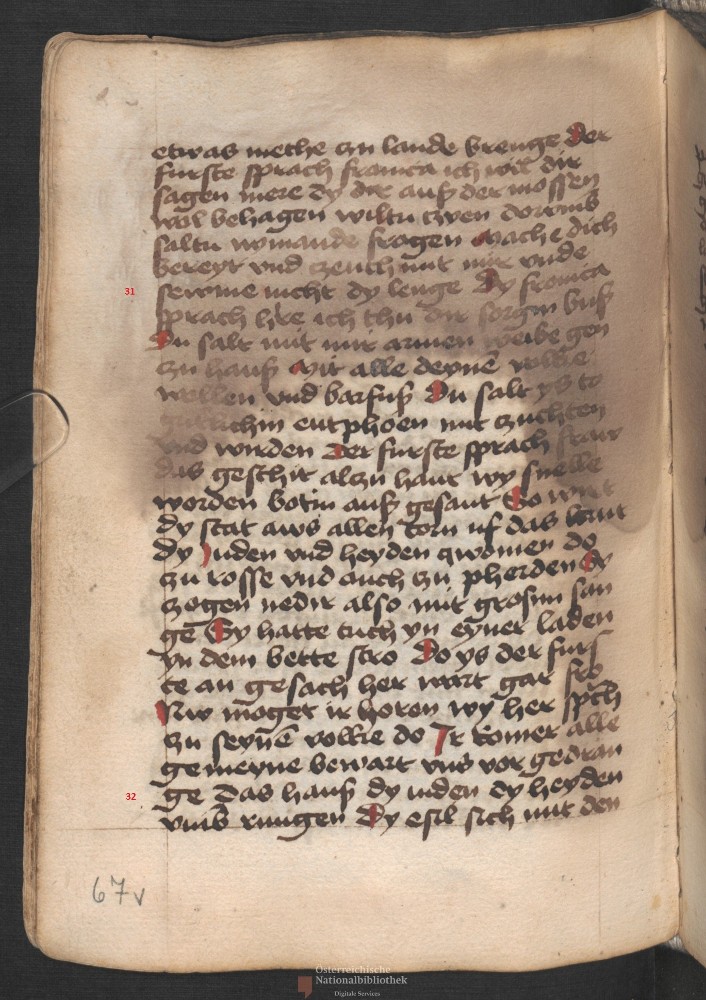 etwas methe czu lande brenge Der
furste sprach fronica ich wil dir
sagen mere dy dir auß der mossen
wol behagen wiltu czven dorvmb
saltu nymande frogen Mache dich
bereyt vnd czeuch mit mir vnde
31 sewme nicht dy lenge Dy fronica
sprach hre ich thu dir sorgin buß
Du salt mit mir armen weibe gen
czu hauß Mit alle deynē volke
wollen vnd barfuß Du salt ys to
entphoen mit czuchten
vnd wirden Der furste sprach fraw
das geschit alczu hant wy snelle
worden botin auß gesant So wirt
dy stat aws allen torn uf das lant
dy Juden vnd heyden qwomen do
czu rosse vnd auch czu pherden Sy
czogen nedir also mit grosim san
gē Sy hatte tuch yn eyner laden
yn dem bette stro Do ys der furs
te an gesach her wart gar fro
Nw moget ir horen wy her sp̄ch
czu seynē volke do Ir romer alle
gemeyne bewart vns vor gedran
32 ge Das hauß dy iuden dy heyden
vmb rungen Dy esil sich mit den
67v
Österreichische
Nationalbibliothek
Digitale Services